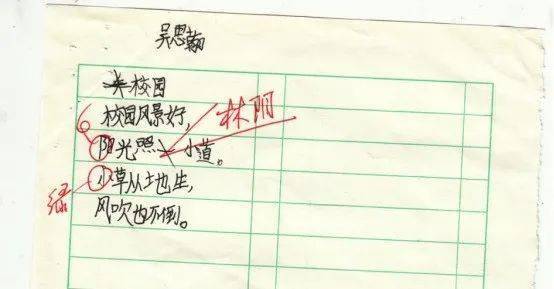 吴思翰
校园
校园风景好,
林阴
阳光照小道。
小草从土地生,
绿
风吹也不倒。